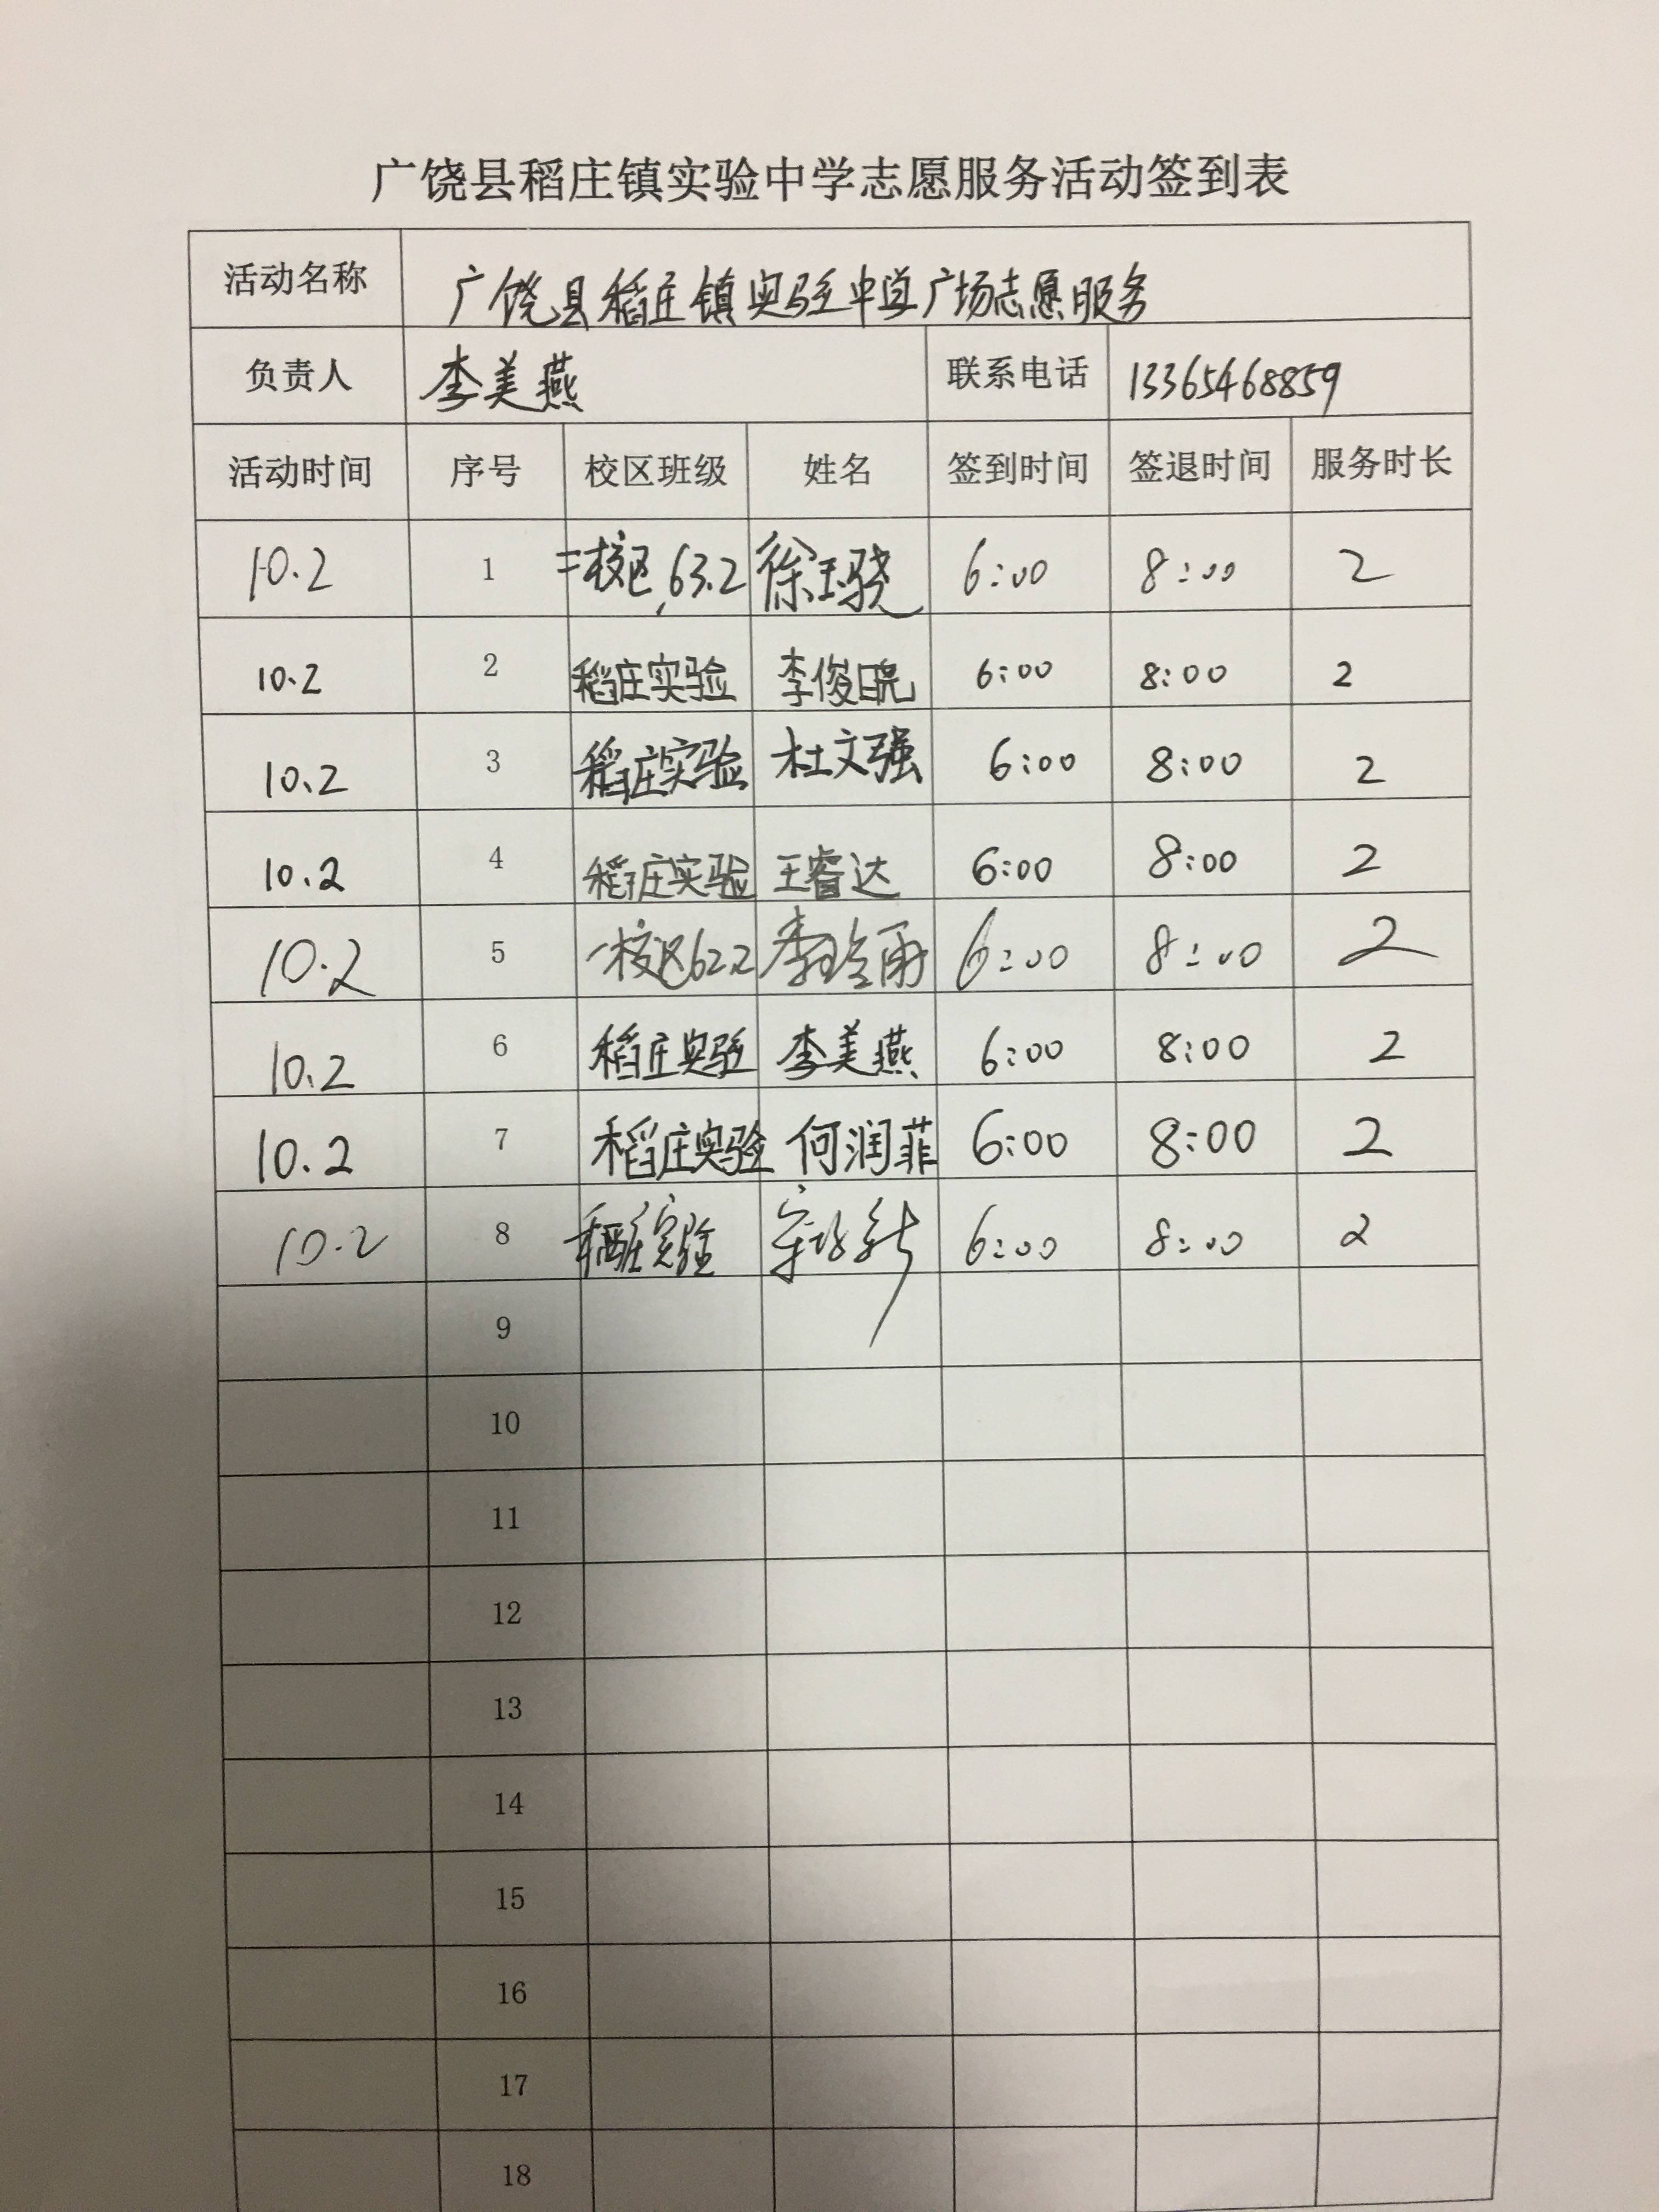 广饶县稻庄镇实验中学志愿服务活动签到表
活动名称 广饶县稻庄镇实验中学广场志愿服务
负责人 李美燕 联系电话 13365468859
活动时间 序号 校区班级 姓名 签到时间 签退时间 服务时长
10.2 1 二校区,63.2 徐玉骁 6:00 8:00 2
10.2 2 稻庄实验 李俊晓 6:00 8:00 2
10.2 3 稻庄实验 杜文强 6:00 8:00 2
10.2 4 稻庄实验 王睿达 6:00 8:00 2
10.2 5 一校区62.2 6:00 8:00 2
10.2 6 稻庄实验 李美燕 6:00 8:00 2
10.2 7 稻庄实验 何润菲 6:00 8:00 2
10.2 8 稻庄实验 6:00 8:00 2
9
10
11
12
13
14
15
16
17
18